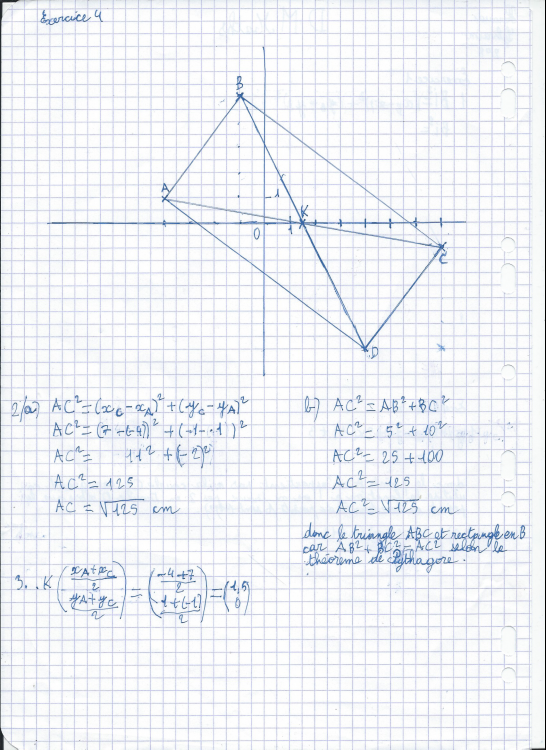 Exercice 4
B
A
1
K
0
1
C
D
2/a) AC² = (x_C - x_A)² + (y_C - y_A)²
AC² = (7 - (-4))² + (-1 - 1)²
AC² = 11² + (-2)²
AC² = 125
AC = √125 cm
b) AC² = AB² + BC²
AC² = 5² + 10²
AC² = 25 + 100
AC² = 125
AC² = √125 cm
donc le triangle ABC et rectangle en B
car AB² + BC² = AC² selon le
théorème de Pythagore.
3.. K ((x_A + x_C)/2 ; (y_A + y_C)/2) = ((-4 + 7)/2 ; (1 + (-1))/2) = (1,5 ; 0)